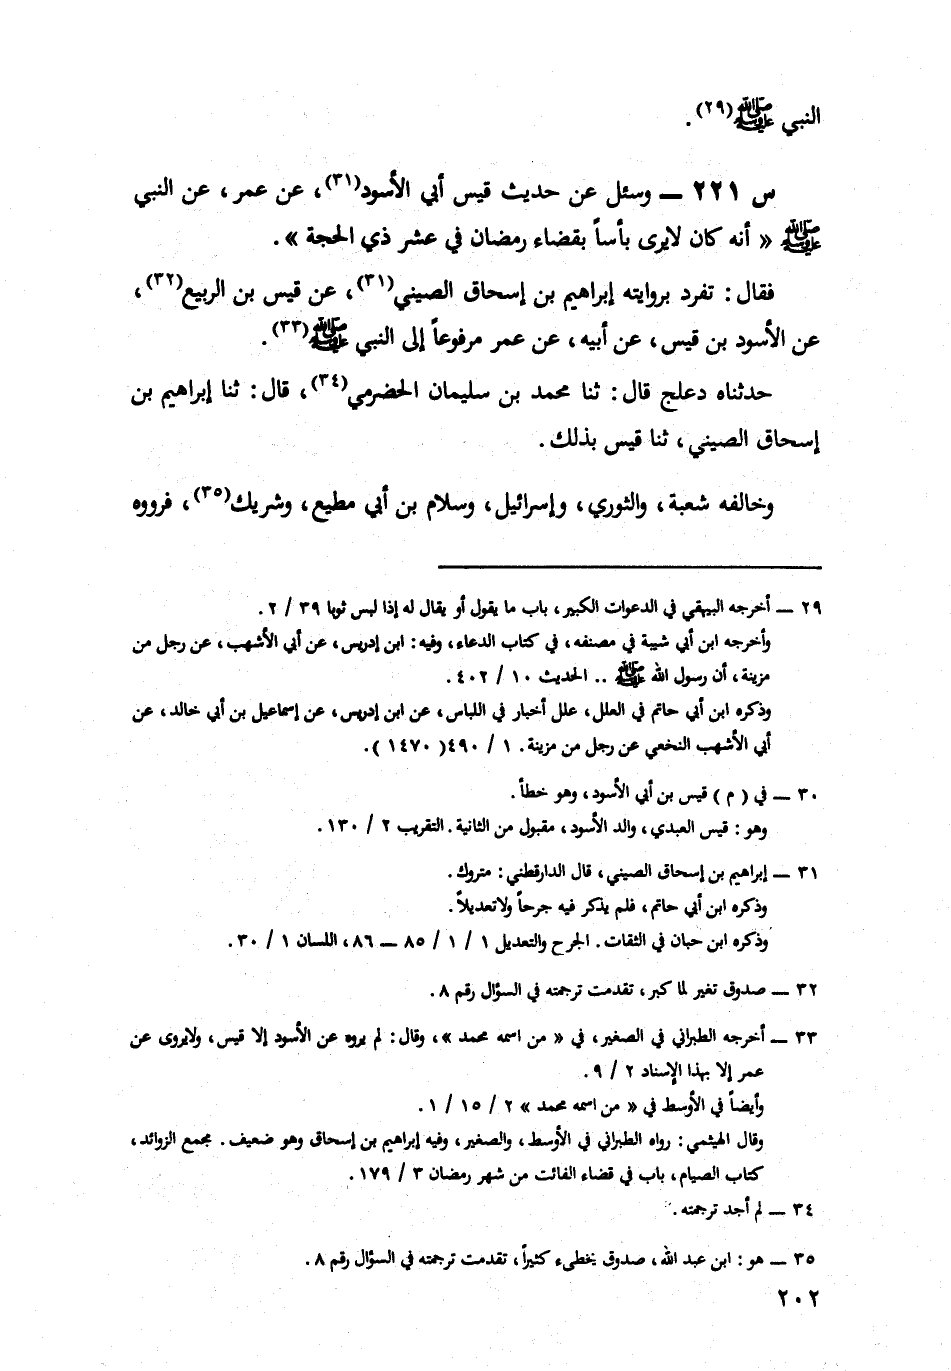 النبي ﷺ(٢٩).
س ٢٢١ — وسئل عن حديث قيس أبي الأسود(٣١)، عن عمر، عن النبي
ﷺ « أنه كان لايرى بأساً بقضاء رمضان في عشر ذي الحجة ».
فقال: تفرد بروايته إبراهيم بن إسحاق الصيني(٣١)، عن قيس بن الربيع(٣٢)،
عن الأسود بن قيس، عن أبيه، عن عمر مرفوعاً إلى النبي ﷺ(٣٣).
حدثناه دعلج قال: ثنا محمد بن سليمان الحضرمي(٣٤)، قال: ثنا إبراهيم بن
إسحاق الصيني، ثنا قيس بذلك.
وخالفه شعبة، والثوري، وإسرائيل، وسلام بن أبي مطيع، وشريك(٣٥)، فرووه
٢٩ — أخرجه البيهقي في الدعوات الكبير، باب ما يقول أو يقال له إذا لبس ثوبا ٣٩ / ٢.
وأخرجه ابن أبي شيبة في مصنفه، في كتاب الدعاء، وفيه: ابن إدريس، عن أبي الأشهب، عن رجل من
مزينة، أن رسول الله ﷺ .. الحديث ١٠ / ٤٠٢.
وذكره ابن أبي حاتم في العلل، علل أخبار في اللباس، عن ابن إدريس، عن إسماعيل بن أبي خالد، عن
أبي الأشهب النخعي عن رجل من مزينة. ١ / ٤٩٠( ١٤٧٠ ).
٣٠ — في ( م ) قيس بن أبي الأسود، وهو خطأ.
وهو: قيس العبدي، والد الأسود، مقبول من الثانية. التقريب ٢ / ١٣٠.
٣١ — إبراهيم بن إسحاق الصيني، قال الدارقطني: متروك.
وذكره ابن أبي حاتم، فلم يذكر فيه جرحاً ولاتعديلاً.
وذكره ابن حبان في الثقات. الجرح والتعديل ١ / ١ / ٨٥ — ٨٦، اللسان ١ / ٣٠.
٣٢ — صدوق تغير لما كبر، تقدمت ترجمته في السؤال رقم ٨.
٣٣ — أخرجه الطبراني في الصغير، في « من اسمه محمد »، وقال: لم يروه عن الأسود إلا قيس، ولايروى عن
عمر إلا بهذا الإسناد ٢ / ٩.
وأيضاً في الأوسط في « من اسمه محمد » ٢ / ١٥ / ١.
وقال الهيثمي: رواه الطبراني في الأوسط، والصغير، وفيه إبراهيم بن إسحاق وهو ضعيف. مجمع الزوائد،
كتاب الصيام، باب في قضاء الفائت من شهر رمضان ٣ / ١٧٩.
٣٤ — لم أجد ترجمته.
٣٥ — هو: ابن عبد الله، صدوق يخطىء كثيراً، تقدمت ترجمته في السؤال رقم ٨.
٢٠٢